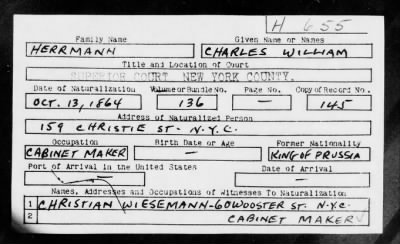 H 655
Family Name Given Name or Names
HERRMANN CHARLES WILLIAM
Title and Location of Court
SUPERIOR COURT NEW YORK COUNTY.
Date of Naturalization Volume or Bundle No. Page No. Copy of Record No.
OCT. 13, 1864 136 — 145
Address of Naturalized Person
159 CHRISTIE ST. N.Y.C.
Occupation Birth Date or Age Former Nationality
CABINET MAKER — KING OF PRUSSIA
Port of Arrival in the United States Date of Arrival
—
Names, Addresses and Occupations of Witnesses To Naturalization
1 CHRISTIAN WIESEMANN-60 WOOSTER ST. N.Y.C.
2 CABINET MAKER